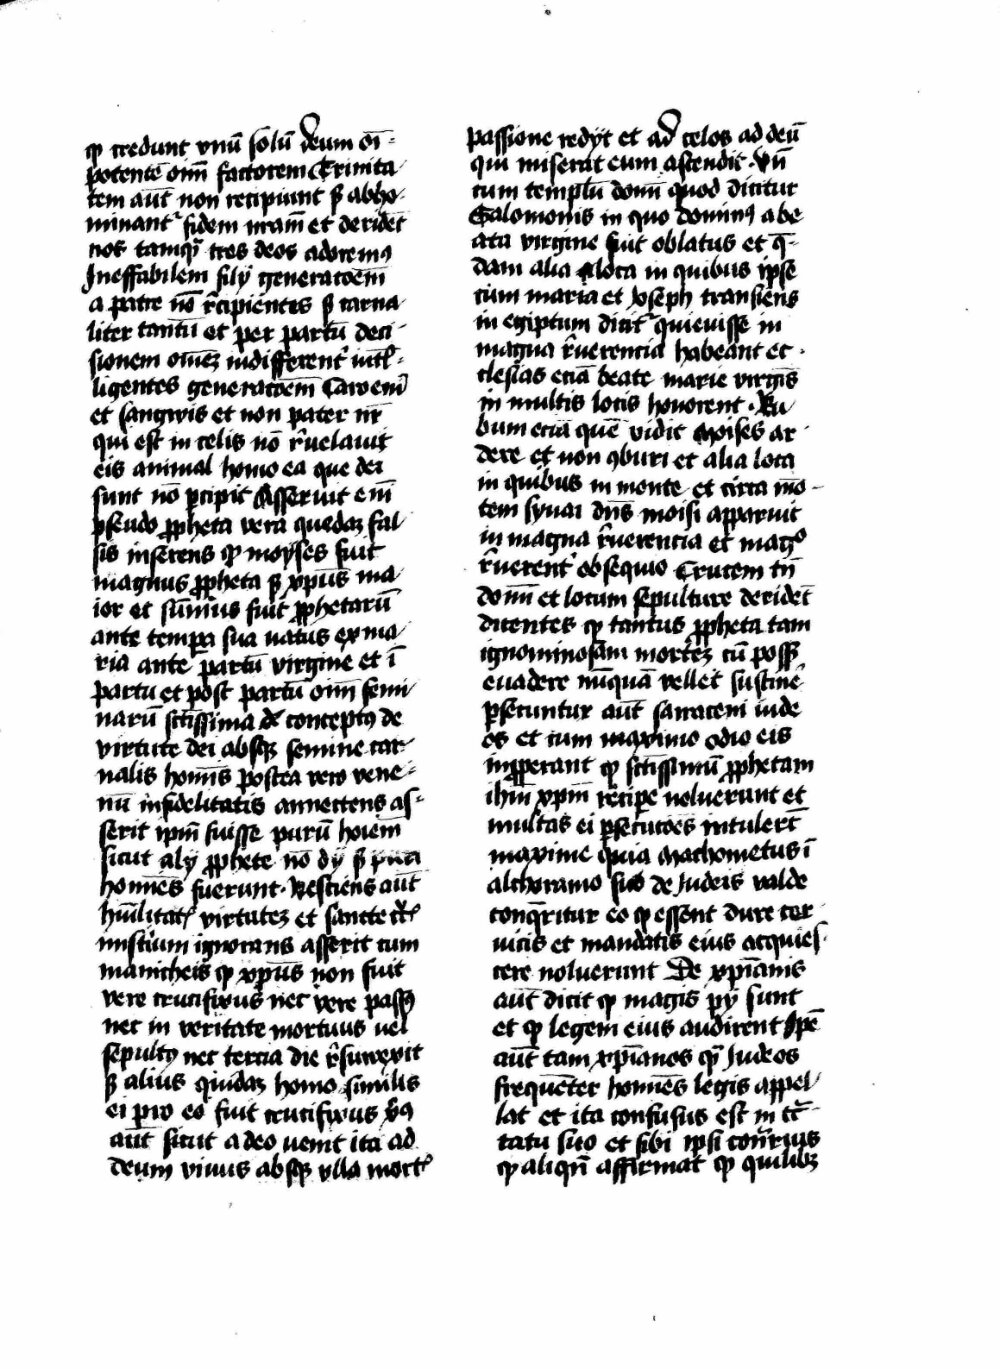 ꝙ credunt vnū solū deum oī-
potentē oīm factorem Trinita
tem aūt non recipiunt sꝫ abho
minantˀ fidem nr̄am et derident
nos tamqꝫ tres deos adoremꝰ
Ineffabilem filij generacoēm
a patre nō r̄cipientes sꝫ carna
liter tantū et per partū deci
sionem om̄ez indifferentˀ intl̄-
ligentes generacoēm Caro em̄
et sangwis et non pater nr̄
qui est in celis nō r̄uelauit
eis animal homo ea que dei
sunt nō ꝑcipit Asseruit em̄
pseudo ꝓpheta vera quedaz fal
sis inserens ꝙ moyses fuit
magnus ꝓpheta sꝫ xp̄us ma
ior et sūmus fuit ꝓphetarū
ante tempa sua natus ex ma
ria ante partū virgine et ī
partu et post partū oīm femi
narū sctīssima de conceptꝰ de
virtute dei absqꝫ semine car
nalis hoīs postea vero vene-
nū infidelitatis annectens as-
serit ip̄m fuisse purū hoīem
sicut alij ꝓphete nō dij sꝫ puri
homines fuerunt. Nesciens aūt
hūilitatˀ virtutez et sancte cˀcˀ
misterium ignorans asserit cum
manicheis ꝙ xp̄us non fuit
vere crucifixus nec vere passꝰ
nec in veritate mortuus uel
sepultꝰ nec tercia die r̄surrexit
sꝫ alius quidaz homo similis
ei pro eo fuit crucifixus xp̄s
aūt sicut a deo uenit ita ad
deum viuus absqꝫ vlla mortˀ
passione redijt et ad celos ad deū
qui miserat eum ascendit. Vn̄
cum templū domī quod dicitur
Salomonis in quo dominꝰ a be
ata virgine fuit oblatus et q̄-
dam alia loca in quibus ipse
cum maria et yoseph transiens
in egiptum dicitˀ quieuisse in
magna r̄uerencia habeant et
clesias eciā beate marie virgīs
in multis locis honorent. Ru
bum eciā quē vidit Moises ar
dere et non ꝯburi et alia loca
in quibus in monte et circa mō-
tem synai dn̄s moisi apparuit
in magna r̄uerencia et magº
r̄uerent obsequio Crucem tn̄
domī et locum sepulture derident
dicentes ꝙ tantus ꝓpheta tam
ignominosam mortēz cū poss
euadere nūquā vellet sustinē
ꝑsecuntur aūt sarraceni iude
os et cum maximo odio eis
imꝓperant ꝙ sctīssimū ꝓphetam
ihm̄ xp̄m recipe noluerunt et
multas ei ꝑsecucoēs intulert
maxime quia Machometus ī
alchorano suo de Iudeis valde
conqueritur eo ꝙ essent dure cer
uicis et mandatis eius acquies-
cere noluerunt De xp̄ianis
aūt dicit ꝙ magis pij sunt
et ꝙ legem eius audirent Ipē
aūt tam xp̄ianos qꝫ Iudeos
frequenter homīes legis appel
lat et ita confusus est in tˀc-
tatu suo et sibi ipsi contrius
ꝙ aliqn̄ affirmat ꝙ quilibꝫ